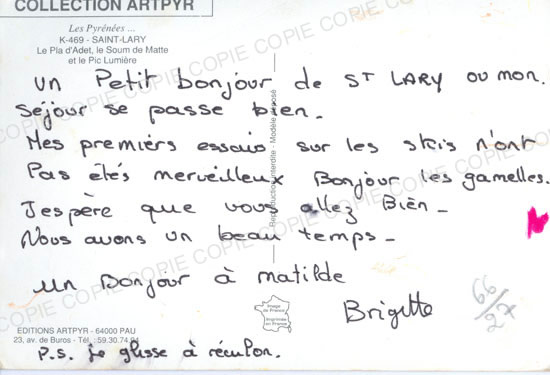 COLLECTION ARTPYR
Les Pyrénées ...
K-469 - SAINT-LARY
Le Pla d'Adet, le Soum de Matte
et le Pic Lumière
un Petit bonjour de ST LARY ou mon.
Séjour se passe bien.
Mes premiers essais sur les skis n'ont
Pas étés merveilleux Bonjour les gamelles.
J'espère que vous allez Bien -
Nous avons un beau temps -
un Bonjour à matilde
Brigitte
P.S. je glisse à réculon.
EDITIONS ARTPYR - 64000 PAU
23, av. de Buros - Tél. : 59.30.74.
Reproduction interdite - Modèle déposé
Image
de France
Imprimée
en France
66
27
COPIE COPIE COPIE COPIE COPIE COPIE